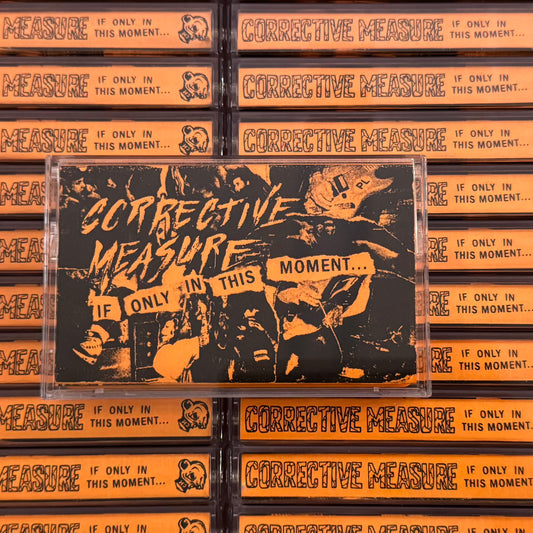 MEASURE IF ONLY IN
THIS MOMENT...
CORRECTIVE MEASURE IF ONLY IN
THIS MOMENT...
MEASURE IF ONLY IN
THIS MOMENT...
CORRECTIVE MEASURE IF ONLY IN
THIS MOMENT...
MEASURE IF ONLY IN
THIS MOMENT...
CORRECTIVE MEASURE IF ONLY IN
THIS MOMENT...
CORRECTIVE
MEASURE
IF ONLY IN THIS MOMENT...
IF ONLY IN
THIS MOMENT...
IF ONLY IN
THIS MOMENT...
IF ONLY IN
THIS MOMENT...
IF ONLY IN
THIS MOMENT...
MEASURE IF ONLY IN
THIS MOMENT...
CORRECTIVE MEASURE IF ONLY IN
THIS MOMENT...
MEASURE IF ONLY IN
THIS MOMENT...
CORRECTIVE MEASURE IF ONLY IN
THIS MOMENT...
MEASURE IF ONLY IN
CORRECTIVE MEASURE IF ONLY IN